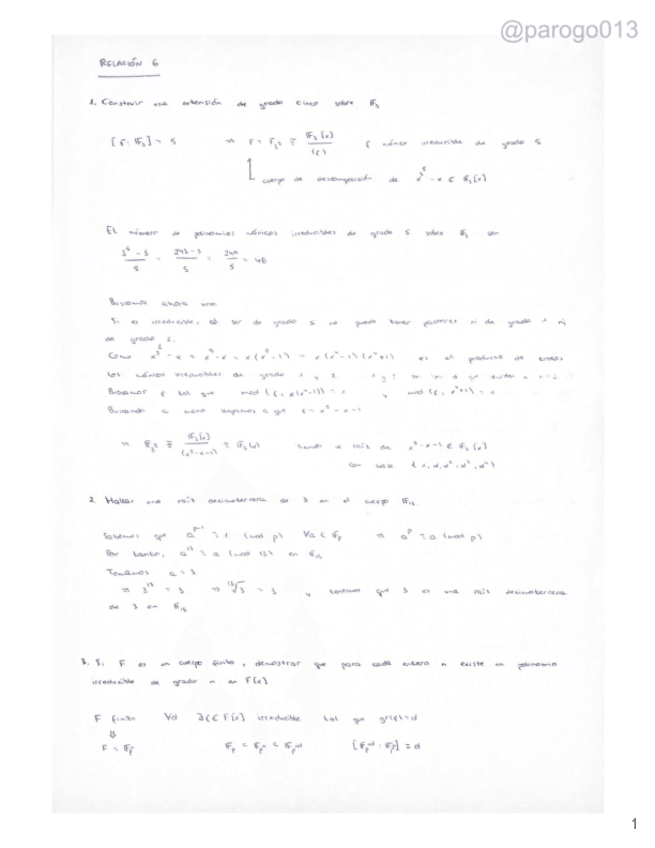 @parogo013
RELACIÓN 6
1. Construir una extensión de grado cinco sobre F₃
[F : F₃] = 5 ⇒ F = F₃⁵ ≅ F₃[x]/(f) f mónico irreducible de grado 5
cuerpo de descomposición de x - x ∈ F₃[x]
El número de polinomios mónicos irreducibles de grado 5 sobre F₃ son
(3⁵ - 3)/5 = (243 - 3)/5 = 240/5 = 48
Buscamos ahora uno.
Si es irreducible, al ser de grado 5 no puede tener factores ni de grado 1 ni
de grado 2.
Como x^3² - x = x⁹ - x = x(x⁸-1) = x(x⁴-1)(x⁴+1) es el producto de todos
los mónicos irreducibles de grado 1 y 2. 1 y 2 son los que dividen a n = 2
Buscamos f tal que mcd(f, x(x⁴-1)) = 1 y mcd(f, x⁴+1) = 1
Buscando a mano llegamos a que f = x⁵ - x - 1
⇒ F₃⁵ ≅ F₃[x]/(x⁵-x-1) ≅ F₃(α) siendo α raíz de x⁵-x-1 ∈ F₃[x]
con base {1, α, α², α³, α⁴}
2. Hallar una raíz decimotercera de 3 en el cuerpo F₁₃.
Sabemos que a^p-1 ≡ 1 (mod p) ∀a ∈ F_p ⇒ a^p ≡ a (mod p)
Por tanto, a¹³ ≡ a (mod 13) en F₁₃
Tomamos a = 3
⇒ 3¹³ = 3 ⇒ ¹³√3 = 3 y tenemos que 3 es una raíz decimotercera
de 3 en F₁₃
3. Si F es un cuerpo finito, demostrar que para cada entero n existe un polinomio
irreducible de grado n en F[x]
F finito ∀d ∃f ∈ F[x] irreducible tal que gr(f) = d
⇓
F = F_pⁿ F_p < F_pⁿ < F_pⁿᵈ [F_pⁿᵈ : F_pⁿ] = d
1